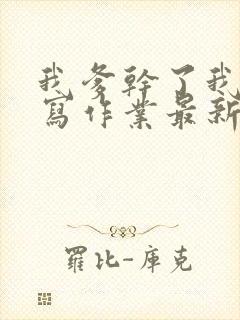 我爹幹了我
寫作業最新
羅比-庫克